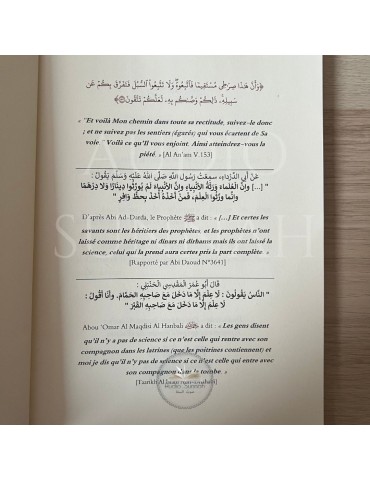 ﴿وَأَنَّ هَٰذَا صِرَٰطِي مُسْتَقِيمًا فَاتَّبِعُوهُ وَلَا تَتَّبِعُوا السُّبُلَ فَتَفَرَّقَ بِكُمْ عَن
سَبِيلِهِ ذَٰلِكُمْ وَصَّىٰكُم بِهِ لَعَلَّكُمْ تَتَّقُونَ﴾
« Et voilà Mon chemin dans toute sa rectitude, suivez-le donc
; et ne suivez pas les sentiers (égarés) qui vous écartent de Sa
voie. Voilà ce qu'Il vous enjoint. Ainsi atteindrez-vous la
piété. » [Al An'am V.153]
عَنْ أَبِي الدَّرْدَاءِ، سَمِعْتُ رَسُولَ اللَّهِ صَلَّى اللَّهُ عَلَيْهِ وَسَلَّمَ يَقُولُ:
" [...] وَإِنَّ الْعُلَمَاءَ وَرَثَةُ الْأَنْبِيَاءِ وَإِنَّ الْأَنْبِيَاءَ لَمْ يُوَرِّثُوا دِينَارًا وَلَا دِرْهَمًا
وَإِنَّمَا وَرَّثُوا الْعِلْمَ، فَمَنْ أَخَذَهُ أَخَذَ بِحَظٍّ وَافِرٍ "
D'après Abi Ad-Darda, le Prophète ﷺ a dit : « [...] Et certes les
savants sont les héritiers des prophètes, et les prophètes n'ont
laissé comme héritage ni dinars ni dirhams mais ils ont laissé la
science, celui qui la prend aura certes pris la part complète. »
[Rapporté par Abi Daoud N°3641]
قَالَ أَبُو عُمَرَ الْمَقْدِسِي الْحَنْبَلِي :
" النَّاسُ يَقُولُونَ: لَا عِلْمَ إِلَّا مَا دَخَلَ مَعَ صَاحِبِهِ الْحَمَّامَ، وَأَنَا أَقُولُ:
لَا عِلْمَ إِلَّا مَا دَخَلَ مَعَ صَاحِبِهِ الْقَبْرَ "
Abou 'Omar Al Maqdisi Al Hanbali a dit : « Les gens disent
qu'il n'y a pas de science si ce n'est celle qui rentre avec son
compagnon dans les latrines (que les poitrines contiennent) et
moi je dis qu'il n'y a pas de science si ce n'est celle qui entre
avec son compagnon dans la tombe. »